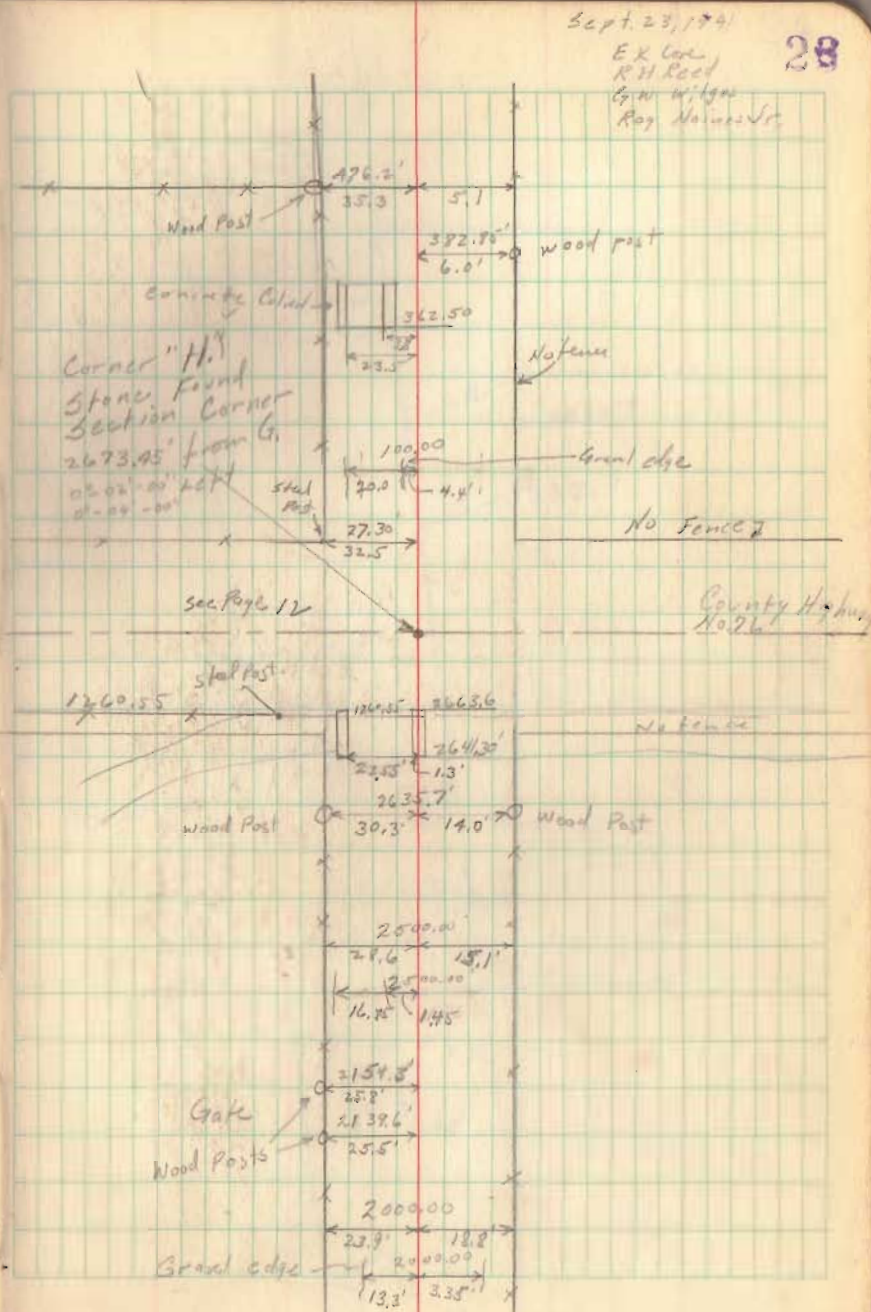 Sept. 23, 1941
28
R H Reed
476.2'
35.3 5.1
Wood Post
382.85' wood post
6.0'
Concrete
362.50
23.5
No fence
Corner "H."
Stone Found
Section Corner
2673.45' from G.
0°-02'-00" Left
0°-04'-00"
100.00
Gravel edge
20.0 4.4'
Steel Post
27.30'
32.5
No Fence
see Page 12
County Highway
No. 76
steel Post
1260.55
2663.6
No fence
2641.30'
22.55' 1.3'
2635.7'
Wood Post 30.3' 14.0' Wood Post
2500.00'
28.6 15.1'
2500.00'
16.85 1.45
2154.3'
25.8'
Gate
2139.6'
25.5'
Wood Posts
2000.00
23.9' 18.8'
Gravel edge 2000.00
13.3' 3.35'